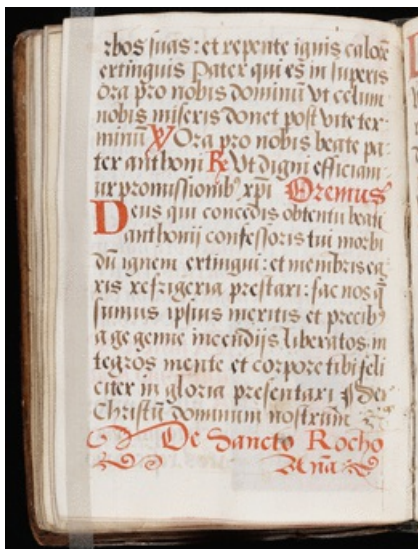 rbos suas: et repente ignis calorē
extinguis Pater qui es in superis
Ora pro nobis dominū vt celum
nobis miseris donet post vite ter
minū ℣ Ora pro nobis beate pa
ter anthoni ℟ Vt digni efficiam
ur promissionibꝰ xp̄i Oremus
Deus qui concedis obtentu beati
anthonij confessoris tui morbi
dū ignem extingui: et membris eg
ris refrigeria prestari: fac nos q̄
sumus ipsius meritis et precibꝰ
a gegenne incendijs liberatos in
tegros mente et corpore tibi feli
citer in gloria presentari
Christū dominum nostrum
De Sancto Rocho
Añа